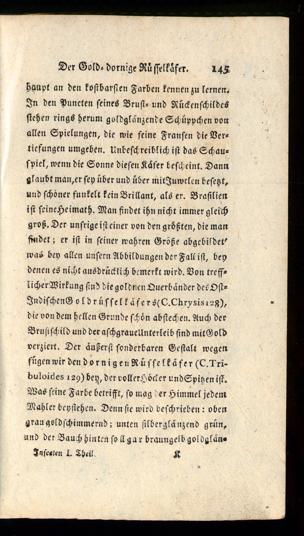 Der Gold-dornige Rüsselkäfer. 145
haupt an den kostbarsten Farben kennen zu lernen.
In den Puncten seines Brust- und Rückenschildes
stehen rings herum goldglänzende Schüppchen von
allen Spielungen, die wie feine Fransen die Ver-
tiefungen umgeben. Unbeschreiblich ist das Schau-
spiel, wenn die Sonne diesen Käfer bescheint. Dann
glaubt man, er sey über und über mit Juwelen besetzt,
und schöner funkelt kein Brillant, als er. Brasilien
ist seine Heimath. Man findet ihn nicht immer gleich
groß. Der unsrige ist einer von den größten, die man
findet; er ist in seiner wahren Größe abgebildet
was bey allen unsern Abbildungen der Fall ist, bey
denen es nicht ausdrücklich bemerkt wird. Von treff-
licher Wirkung sind die goldnen Querbänder des Ost-
Indischen Goldrüsselkäfers (C. Chrysis 128),
die von dem hellen Grunde schön abstechen. Auch der
Brustschild und der aschgraue Unterleib sind mit Gold
verziert. Der äußerst sonderbaren Gestalt wegen
fügen wir den dornigen Rüsselkäfer (C. Tri-
buloides 129) bey, der voller Höcker und Spitzen ist.
Was seine Farbe betrifft, so mag der Himmel jedem
Mahler beystehen. Denn sie wird beschrieben: oben
grau goldschimmernd; unten silberglänzend grün,
und der Bauch hinten soll gar braungelb goldglän-
Insecten I. Theil. K